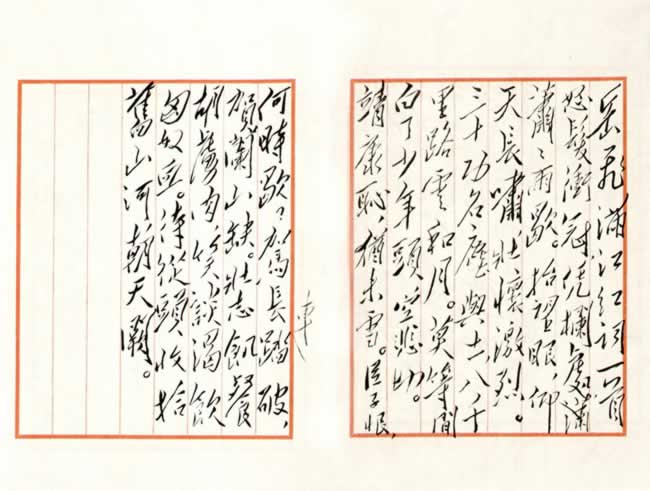 岳飛滿江红詞一首
怒髮衝冠凭欄處瀟
瀟〻雨歇。抬望眼,仰
天長嘯,壯懷激烈。
三十功名塵與土八千
里路雲和月。莫等閒
白了少年頭空悲切。
靖康恥,猶未雪。臣子恨,
何時歇〻駕長車踏破,
賀蘭山缺。壯志飢餐
胡虜肉,笑談渴飲
匈奴血。待從頭收拾
舊山河,朝天闕。